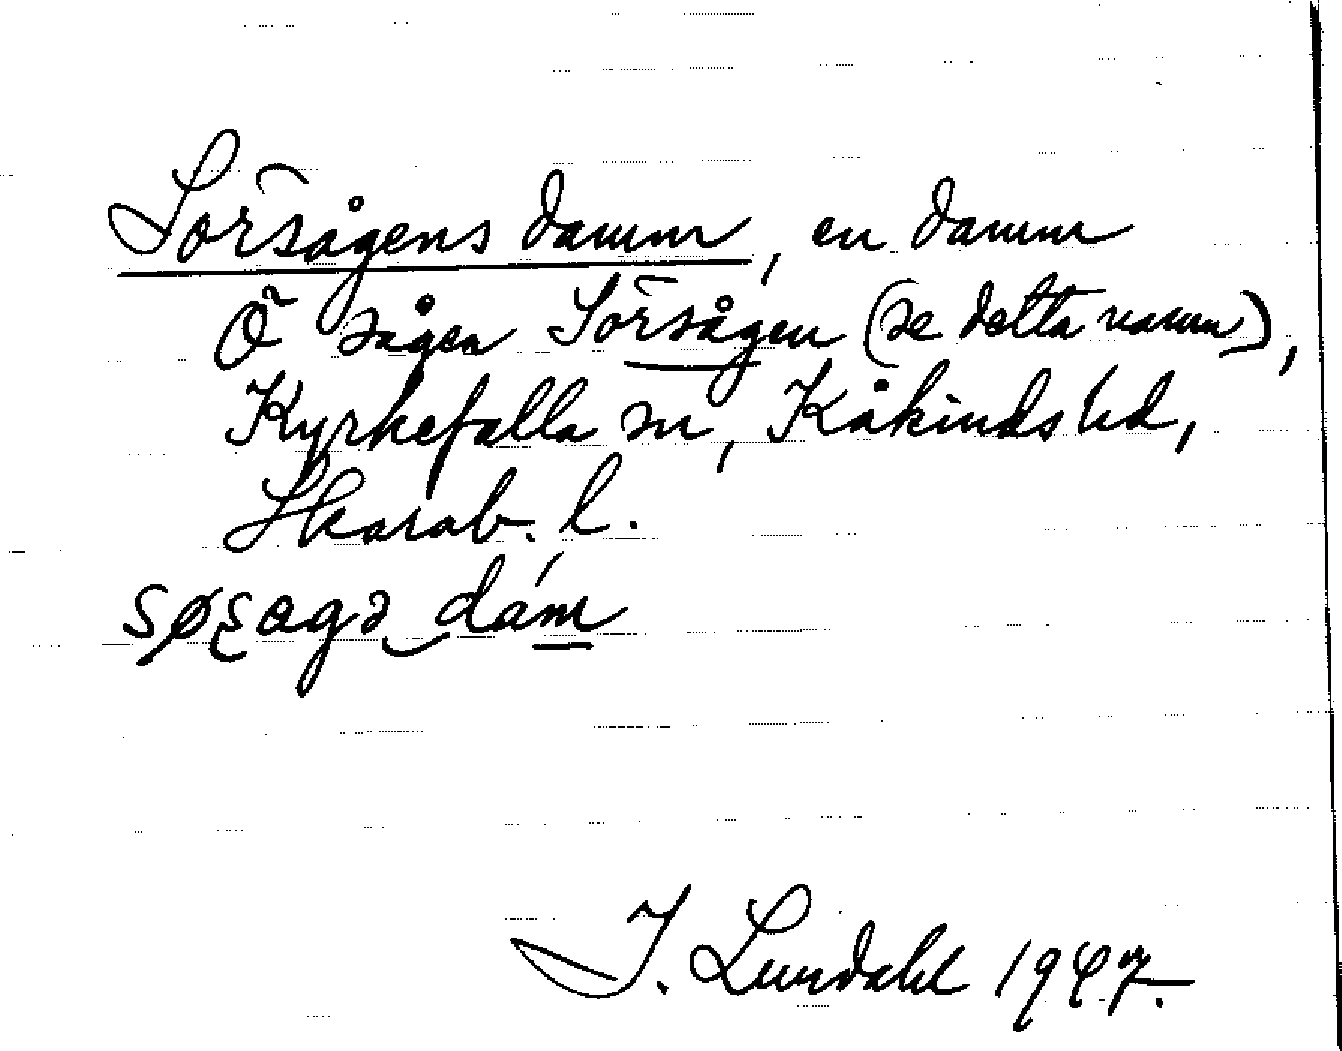 Sörsågens damm, en damm
Ö sågen Sörsågen (se detta namn),
Kyrkefalla sn, Kåkinds hd,
Skarab. l.
I. Lundahl 1947.